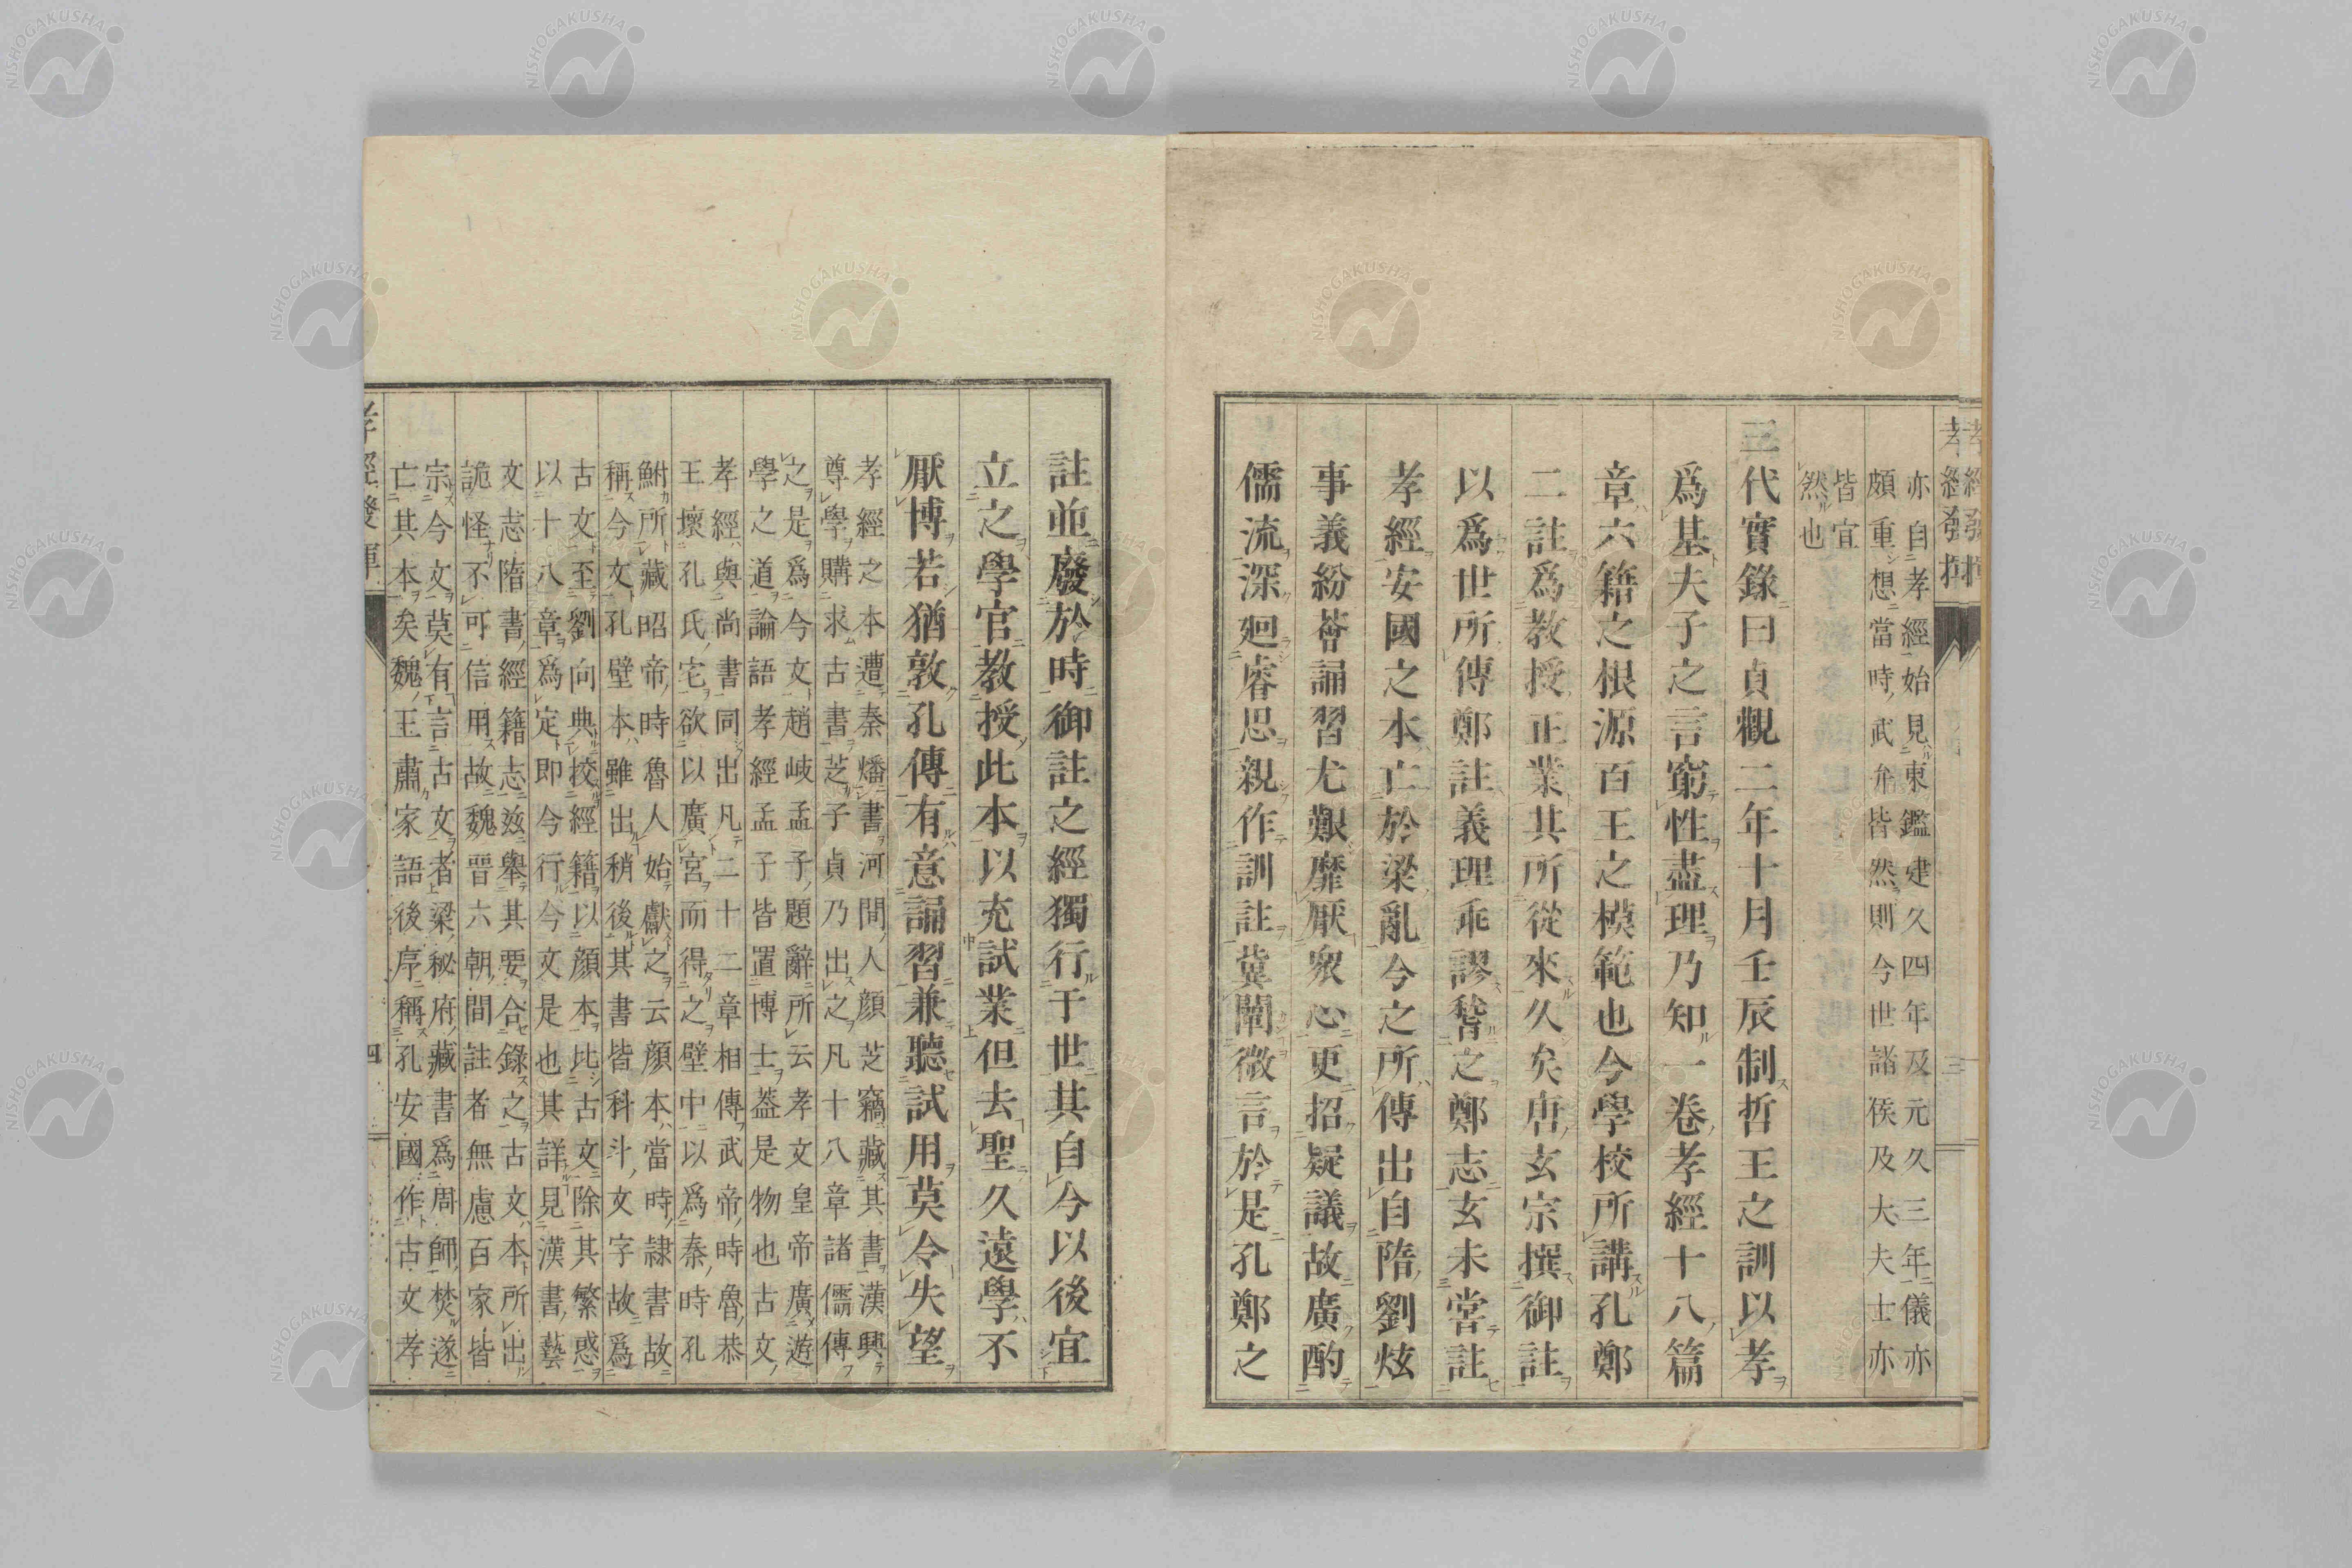 亦自孝經始見東鑑建久四年及元久三年儀亦
頗重想當時武弁皆然則今世諸侯及大夫士亦
皆宜
然也
三代實錄曰貞觀二年十月壬辰制哲王之訓以孝
爲基夫子之言窮性盡理乃知一卷孝經十八篇
章六籍之根源百王之模範也今學校所講孔鄭
二註爲教授正業其所從來久矣唐玄宗撰御註
以爲世所傳鄭註義理乖謬稽之鄭志玄未嘗註
孝經安國之本亡於梁亂今之所傳出自隋劉炫
事義紛薈誦習尤艱靡厭衆心更招疑議故廣酌
儒流深廻睿思親作訓註冀闡微言於是孔鄭之
註並廢於時御註之經獨行于世其自今以後宜
立之學官教授此本以充試業但去聖久遠學不
厭博若猶敦孔傳有意誦習兼聽試用莫令失望
孝經之本遭秦燔書河間人顔芝竊藏其書漢興
尊學購求古書芝子貞乃出之凡十八章諸儒傳
之是爲今文趙岐孟子題辭所云孝文皇帝廣遊
學之道論語孝經孟子皆置博士葢是物也古文
孝經與尚書同出凡二十二章相傳武帝時魯恭
王壞孔氏宅欲以廣宮而得之壁中以爲秦時孔
鮒所藏昭帝時魯人始獻之云顔本當時隷書故
稱今文孔壁本雖出稍後其書皆科斗文字故爲
古文至劉向典挍經籍以顔本比古文除其繁惑
以十八章爲定即今行今文是也其詳見漢書藝
文志隋書經籍志玆舉其要合錄之古文本所出
詭怪不可信用故魏晉六朝間註者無慮百家皆
宗今文莫有言古文者梁秘府藏書爲周師焚遂
亡其本矣魏王肅家語後序稱孔安國作古文孝
孝經發揮
三
四
NISHOGAKUSHA